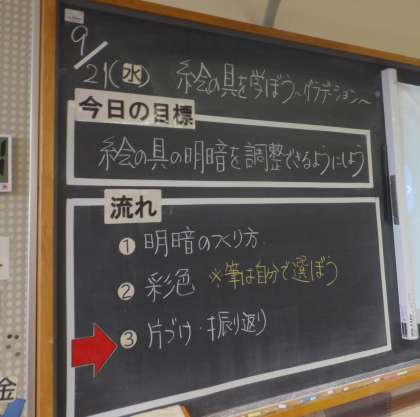 9/21(水) 絵の具を学ぼう~グラデーション~
今日の目標
絵の具の明暗を調整できるようにしよう
流れ
① 明暗のつくり方
② 彩色 ※筆は自分で選ぼう
③ 片づけ・振り返り
金